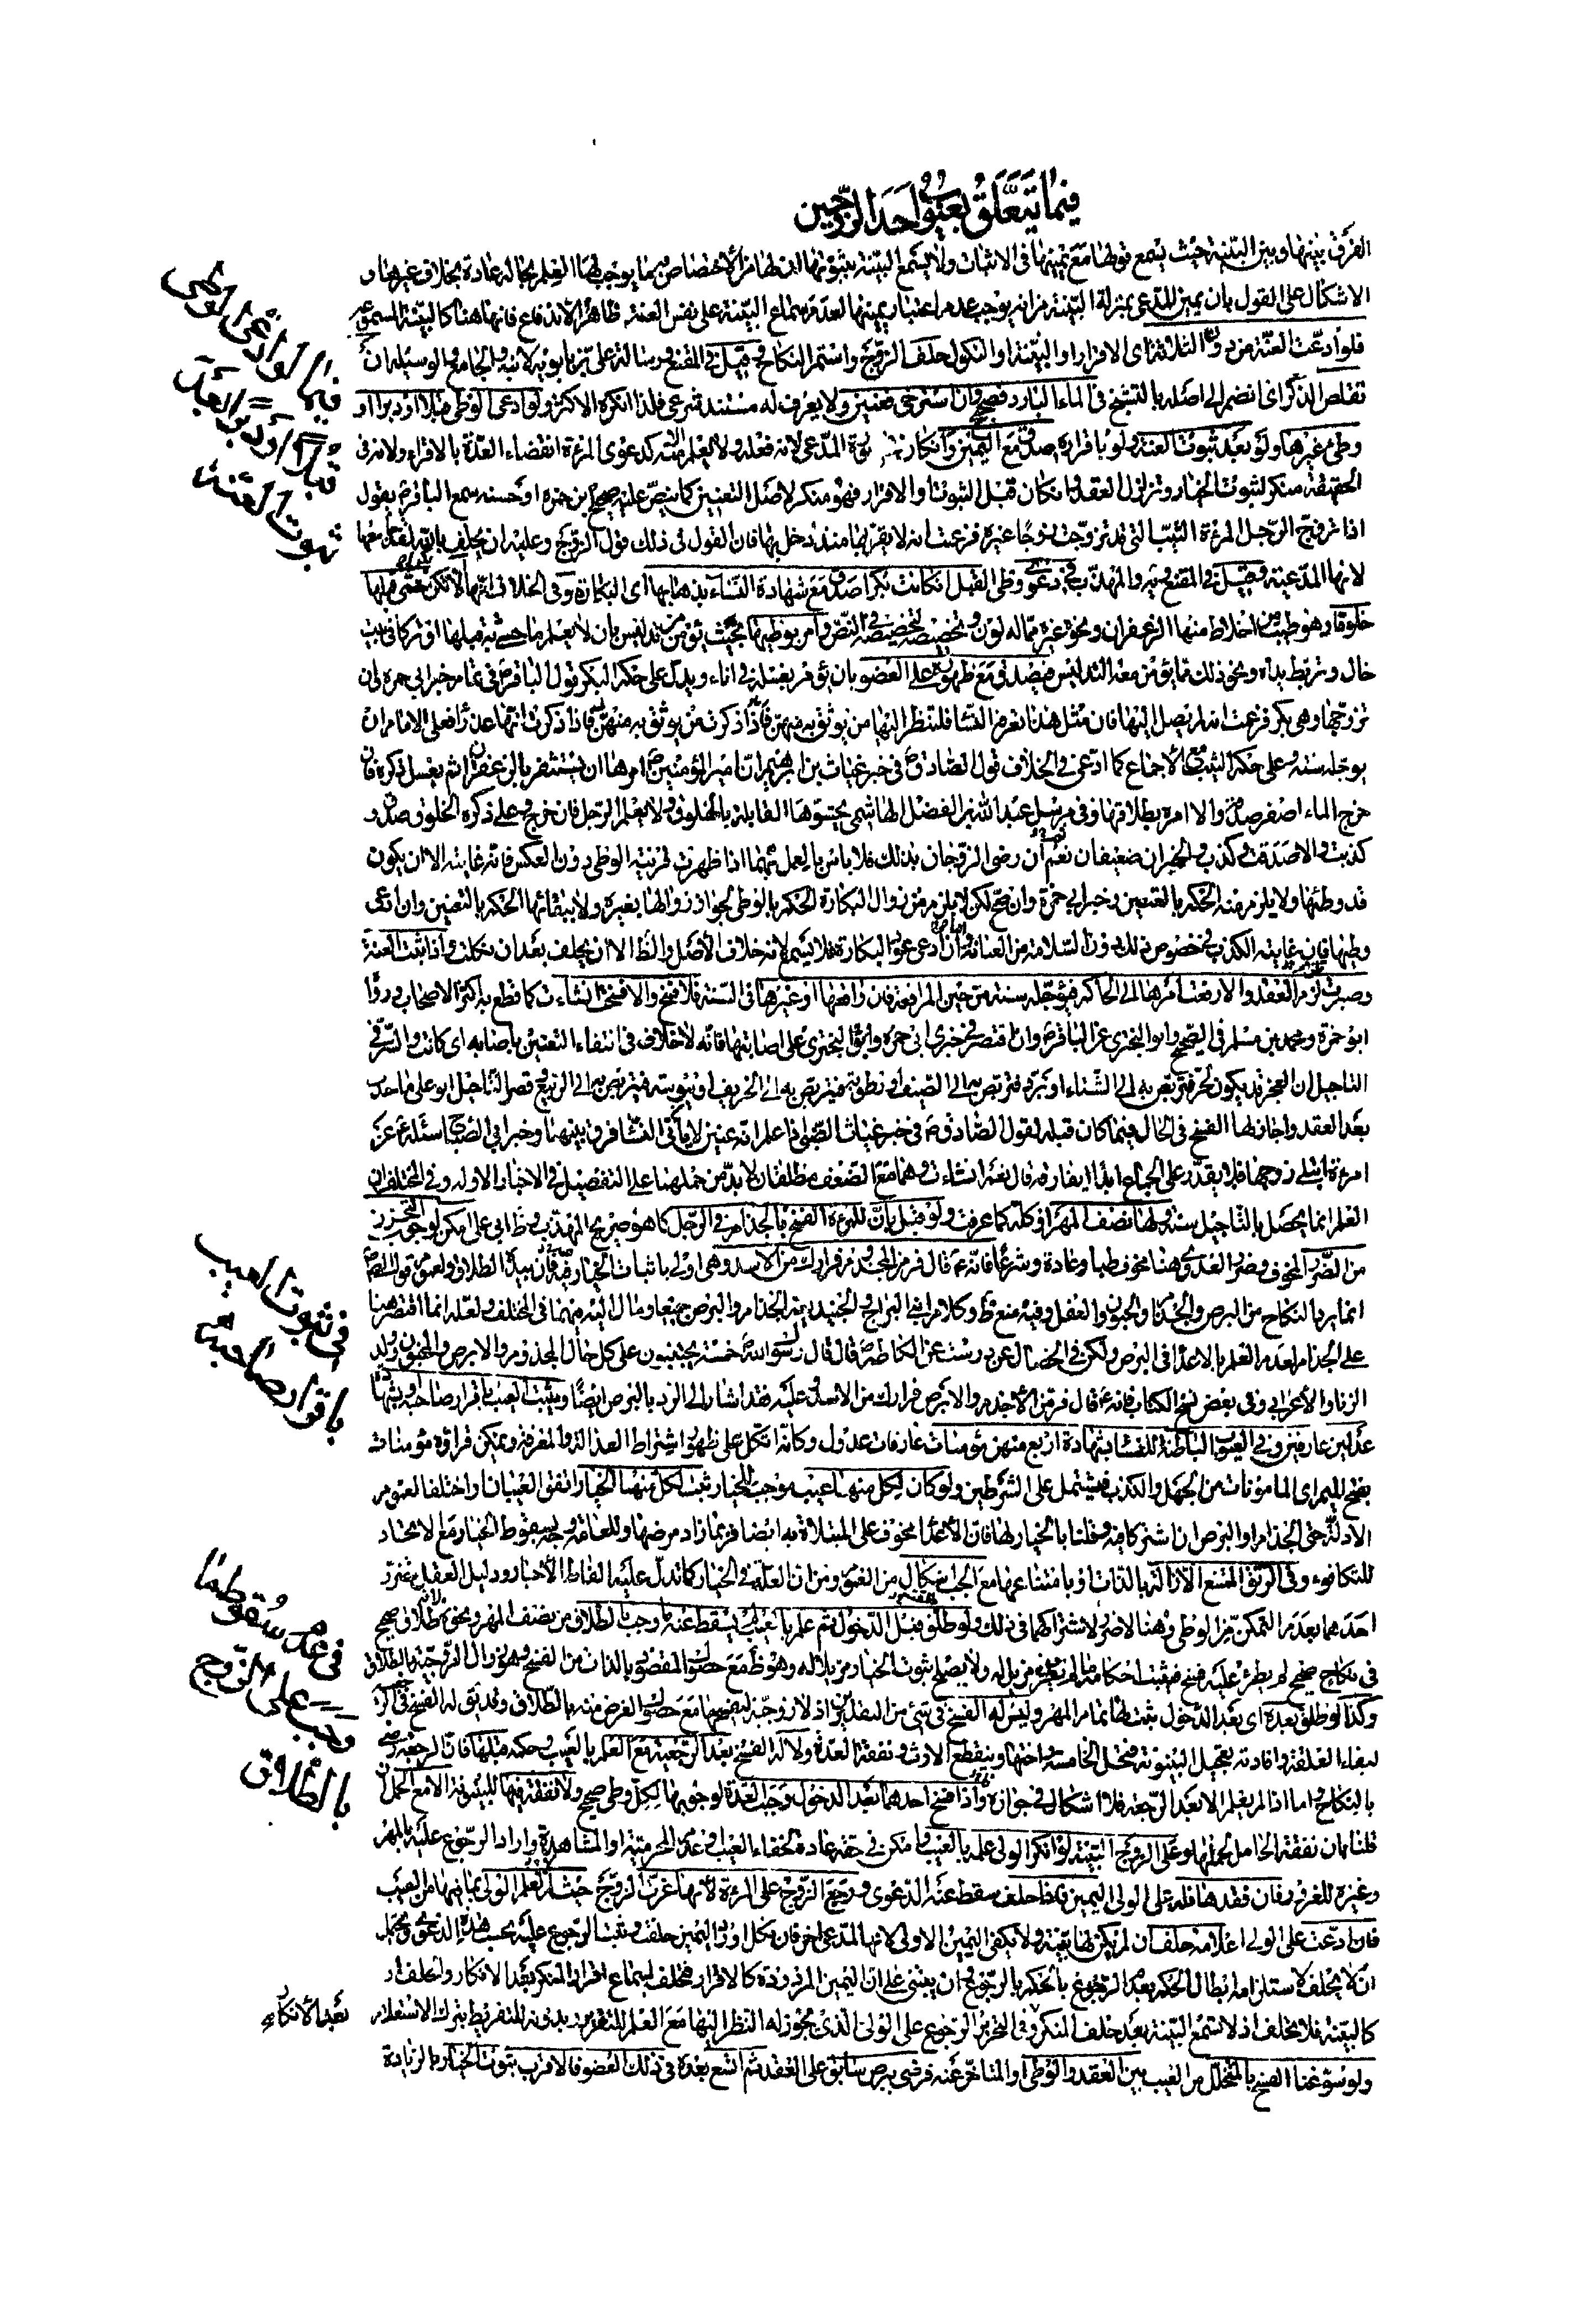 فيما يتعلق بعيوب احد الزوجين
الفرق بينها وبين البينة حيث يسمع قولها مع يمينها في الاثبات ولا يسمع البينة بثبوتها ان لها من الاختصاص بها يوجب لها العلم بحاله عادة بخلاف غيرها و
الاشكال على القول بان يمين المدعى بمنزلة البينة من انه يوجب عدم اعتبار يمينها لعدم سماع البينة على نفس العنة ظاهر الاندفاع فانها هنا كالبينة المسموعة
فلو ادعت العنة من دون الثلاثة اى الاقرار او البينة او النكول حلف الزوج واستمر النكاح وقيل في المقنع ورسالة على بن بابويه لابنه والجامع والوسيلة ان
تقلص الذكر اى انضم الى اصله بالتشنج في الماء البارد فصحيح وان استرخى فعنين ولا يعرف له مستند شرعى فلذا انكره الاكثر ولو ادعى الوطى قبلا او دبرا او
وطى غيرها ولو بعد ثبوت العنة ولو باقراره صدق مع اليمين وان كان بصورة المدعى لانه فعله ولا يعلم الا منه كدعوى المرءة انقضاء العدة بالاقراء ولانه في
الحقيقة منكر لثبوت الخيار وتزلزل العقد وان كان قبل الثبوت او الاقرار فهو منكر لاصل التعنين كما ينص عليه صحيح ابن حمزة او حسنه سمع الباقر يقول
اذا تزوج الرجل المرءة الثيب التى قد تزوجت زوجا غيره فزعمت انه لا يقربها منذ دخل بها فان القول في ذلك قول الزوج وعليه ان يحلف بالله لقد جامعها
لانها المدعية وقيل في المقنع وية والمهذب في دعوى وطى القبل ان كانت بكرا صدق مع شهادة النساء بذهابها اى البكارة وفي الخلاف انها لا تكن حشى قبلها
خلوقا وهو طيب من اخلاط منها الزعفران ونحو غيره مما له لون وتخصيصه لتخصيصه في النص وامر بوطيها بحيث يؤمن تدليس بان لا يعلم ما حشى به قبلها او تركا في بيت
خال وتربط يداه ونحو ذلك مما يؤمن معه التدليس فيصدق مع ظهوره على العضو بان يؤمر بغسله في اناء ويدل على حكم البكر قول الباقر في تمام خبر ابى حمزة وان
تزوجها وهى بكر فزعمت انه لم يصل اليها فان مثل هذا تعرف النساء فلتنظر اليها من يوثق به منهن فاذا ذكرت انها عذراء فعلى الامام ان
يؤجله سنة وعلى حكم الثيب مع الاجماع كما ادعى في الخلاف قول الصادق في خبر غياث بن ابرهيم ان امير المؤمنين امرها ان تستثفر بالزعفران ثم يغسل ذكره فان
خرج الماء اصفر صدقه والا امره بطلاقها وفي مرسل عبد الله بن الفضل الهاشمى يحشوها القابلة بالخلوق ولا يعلم الرجل فان خرج وعلى ذكره الخلوق صدق و
كذبت والا صدقت وكذب والخبران ضعيفان نعم ان رضى الزوجان بذلك فلا باس بالعمل بهما اذا ظهرت قرينة الوطى دون العكس فانه غايته الا ان يكون
قد وطئها ولا يلزم منه الحكم بالتعنين وخبر ابى حمزة وان صح لكن لا يلزم من زوال البكارة الحكم بالوطى لجواز زوالها بغيره ولا ببقائها الحكم بالتعنين وان ادعى
وطيها فان غايته الكذب في خصوص ذلك دون السلامة من العنة وان ادعى عود البكارة فلا يسمع لانه خلاف الاصل والظ الا ان يحلف بعد ان نكلت واذا ثبت العنة
وصبرت لزم العقد والا رفعت امرها الى الحاكم فيؤجله سنة من حين المرافعة فان واقعها او غيرها في السنة فلا فسخ والا فسخت ان شاءت كما قطع به اكثر الاصحاب ورواه
ابو حمزة ومحمد بن مسلم في الصحيح وابو البخترى عن الباقر وان اقتصر في خبرى ابى حمزة وابو البخترى على اصابتها فانه لا خلاف في انتفاء التعنين باصابة اى كانت والسر في
التاجيل ان العجز قد يكون لحر فيتربص به الى الشتاء او برد فيتربص به الى الصيف او رطوبة فيتربص به الى الخريف او يبوسة فيتربص به الى الربيع وقصر التاجيل ابو على ما حدث
بعد العقد واجاز لها الفسخ في الحال فيما كان قبله لقول الصادق في خبر غياث الضبى اذا علم انه عنين لا يأتى النساء فرق بينهما وخبر ابى الصباح سئله عن
امرءة ابتلى زوجها فلا يقدر على الجماع ابدا ايفارقه قال نعم ان شاءت وهما مع الضعف مطلقان لا بد من حملهما على التفصيل في الاخبار الاولة وفي المختلف ان
العلم انما يحصل بالتاجيل سنة ولها نصف المهر او كله كما عرفت ولو قيل بان للمرءة الفسخ بالجذام في الرجل كما هو صريح المهذب وظ ابى على امكن لوجوب التحرز
من الضرر المخوف وضرر العدوى هنا مخوف طبا وعادة وشرعا فانه قال فر من المجذوم فرارك من الاسد وهى اولى باثبات الخيار منه فان بيده الطلاق ولعموم قول الصادق
انما يرد النكاح من البرص والجذام والجنون والعفل وفيه منع ظ وكلام ابنى البراج والجنيد يعم الجذام والبرص جميعا ومال اليه منهما في المختلف ولعله انما اقتصر هنا
على الجذام لعدم العلم بالاعداء في البرص ولكن في الخصال عن درست عن الكاظم قال قال رسول الله خمسة يجتنبون على كل حال المجذوم والابرص والمجنون وولد
الزنا والاعرابى وفي بعض نسخ الكتاب فانه قال فر من الاجذم والابرص فرارك من الاسد وعليه فقد اشار الى الرد بالبرص ايضا ويثبت العيب باقرار صاحبه وبشهادة
عدلين عارفين وفي العيوب الباطنة للنساء بشهادة اربع منهن مؤمنات عارفات عدول وكانه اتكل على ظهور اشتراط العدالة والمعرفة ويمكن قراءة مؤمنات
بفتح الميم اى المامونات من الجهل والكذب فيشتمل على الشرطين ولو كان لكل منهما عيب موجب للخيار ثبت لكل منهما الخيار اتفق العيبان او اختلفا لعموم
الادلة حتى الجذام والبرص ان اشتركا فيه وقلنا بالخيار لها فان الاعداء مخوف على المبتلاة به ايضا فربما زاد مرضها وللعامة وجه بسقوط الخيار مع الاتحاد
للتكافوء وفي الرتق الممتنع الازالة بالذات او بامتناعها مع الجب اشكال من العموم ومن ان العلة في الخيار كما تدل عليه الفاظ الاخبار ودليل العقل تضرر
احدهما بعدم التمكن من الوطى وهنا لا ضرر لاشتراكهما في ذلك ولو طلق قبل الدخول ثم علم بالعيب لم يسقط عنه ما وجب بالطلاق من نصف المهر ونحوه لانه طلاق صحيح
في نكاح صحيح لم يطرء عليه فسخ فيثبت احكامه ما لم يطرء مزيل له ولا يصلح ثبوت الخيار مزيلا له وهو ظ مع حصول المقصود بالذات من الفسخ وهو زوال الزوجية بالطلاق
وكذا لو طلق بعده اى بعد الدخول يثبت لها تمام المهر وليس له الفسخ في شئ من التقديرين اذ لا زوجية ليفسخها مع حصول الغرض منه بالطلاق وقد يق له الفسخ في الرجعى
لبقاء العلقة وافادته تعجيل البينونة فتحل الخامسة واختها وينقطع الارث ونفقة العدة ولا له الفسخ بعد الرجعة مع العلم بالعيب وحكمه قبلها فان الرجعة رضى
بالنكاح واما اذا لم يعلم الا بعد الرجعة فلا اشكال في جوازه واذا فسخ احدهما بعد الدخول وجبت العدة لوجوبها لكل وطى صحيح ولا نفقة فيها للبينونة الا مع الحمل ان
قلنا بان نفقة الحامل لحملها وعلى الزوج البينة لو انكر الولى علمه بالعيب وامكن في حقه عادة لخفاء العيب وعدم المحرمية او المشاهدة واراد الرجوع عليه بالمهر
وغيره للغرور فان فقدها فله على الولى اليمين فاذا حلف سقط عنه الدعوى ورجع الزوج على المرءة لانها غرت الزوج حيث لم تعلم الولى بما فيها من العيب
فان ادعت على الولى اعلامه حلف ان لم يكن لها بينة ولا يكفى اليمين الاولى لانها لمدعى اخر فان نكل او رد اليمين حلفت وثبت الرجوع عليه بحسب هذه الدعوى ويحتمل
ان لا يحلف لاستلزامه ابطال الحكم بعدم الرجوع بالحكم بالرجوع او ان يبتنى على ان اليمين المردودة كالاقرار فيحلف لسماع اقرار المنكر بعد الانكار والحلف او
كالبينة فلا يحلف اذ لا تسمع البينة بعد حلف المنكر وفي التحرير الرجوع على الولى الذى يجوز له النظر اليها مع العلم للتغرير وبدونه للتفريط بترك الاستعلام
ولو سوغنا الفسخ بالمتخلل من العيب بين العقد والوطى او المتاخر عنه فرضى ببرص سابق على العقد ثم اتسع بعده في ذلك العضو فالاقرب ثبوت الخيار بالزيادة
فيما لو ادعى الوطى
قبلا او دبرا بعد
ثبوت العنة
في ثبوت العيب
باقرار صاحبه
في عدم سقوط ما
وجب على الزوج
بالطلاق
بعد الانكار